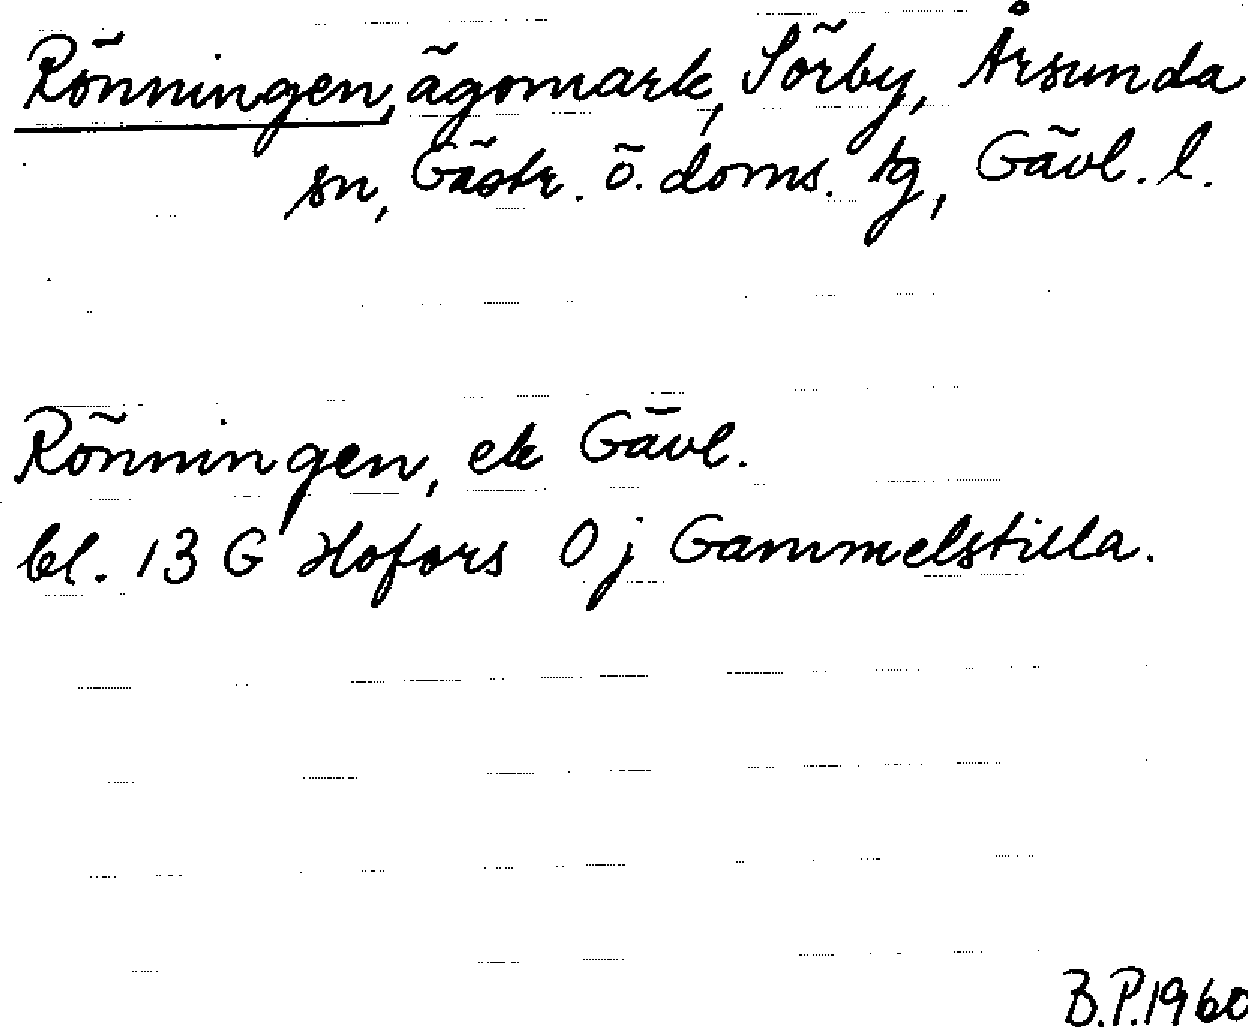 Rönningen, ägomark, Sörby, Årsunda
sn, Gästr. ö. doms. tg, Gävl. l.
Rönningen, ek Gävl.
bl. 13 G Hofors 0 j Gammelstilla.
B.P. 1960